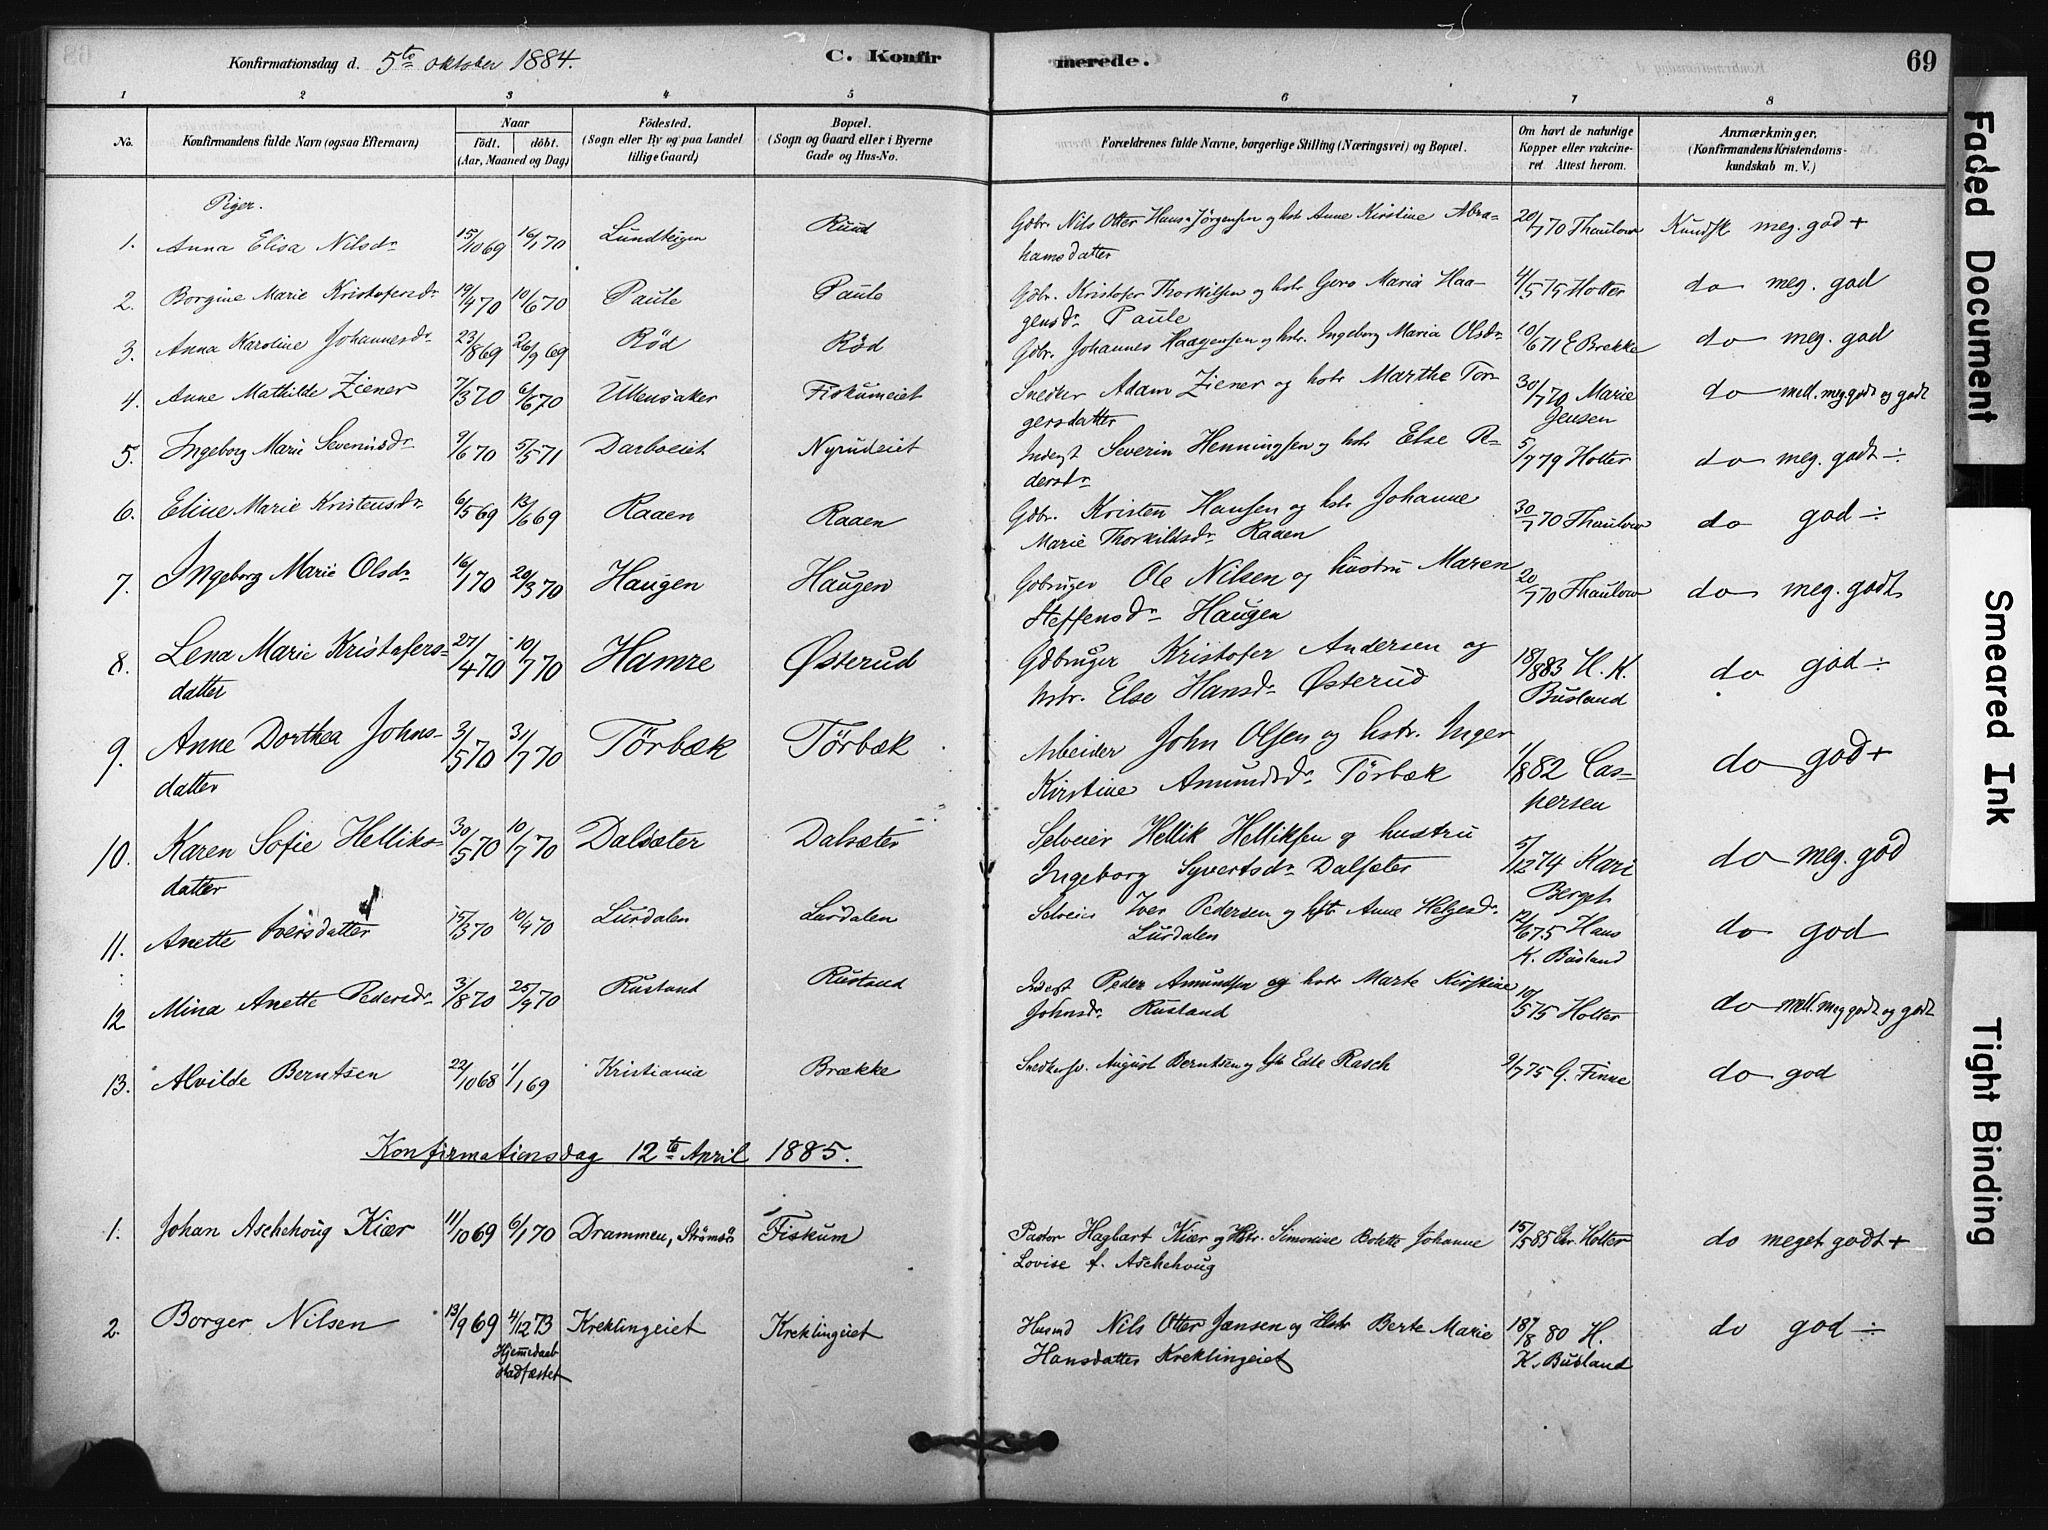 Konfirmationsdag d. 5te oktober 1884. C. Konfirmerede. 69
1 2 3 4 5 6 7 8
No. Konfirmandens fulde Navn (ogsaa Efternavn) Naar födt. döbt. (Aar, Maaned og Dag) Födested. (Sogn eller By og paa Landet tillige Gaard) Bopæl. (Sogn og Gaard eller i Byerne Gade og Hus-No. Forældrenes fulde Navne, borgerlige Stilling (Næringsvei) og Bopæl. Om havt de naturlige Kopper eller vakcineret Attest herom. Anmærkninger. (Konfirmandens Kristendomskundskab m. V.)
Piger.
1. Anna Elisa Nilsdr 15/10 69 16/1 70 Lundteigen Ruud Gdbr. Nils Otter Hans Jörgensen og hstr Anne Kirstine Abra- 20/7 70 Thaulow Kundsk meg. god +
hamsdatter
2. Borgine Marie Kristofersdr 19/4 70 10/6 70 Paule Paule Gdbr. Kristofer Thorkilsen og hstr Goro Maria Haa- 4/5 75 Holter do meg. god
gensdr Paule
3. Anna Karoline Johannesdr 23/8 69 26/9 69 Röd Röd Gdbr. Johannes Haagensen og hstr. Ingeborg Maria Olsdr 10/6 71 E Brekke do meg. god
4. Anne Mathilde Ziener 7/3 70 6/6 70 Ullensaker Fiskumeiet Snedker Adam Ziener og hstr Marthe Tor- 30/7 70 Marie do mell. meg. godt og godt
gersdatter Jensen
5. Ingeborg Marie Severinsdr 9/6 70 5/5 71 Darboeiet Nyrudeiet Inderst Severin Henningsen og hstr Else R- 5/7 79 Holter do meg. godt ÷
dersdr
6. Eline Marie Kristensdr 6/5 69 13/6 69 Raaen Raaen Gdbr. Kristen Hansen og hstr Johanne 30/7 70 Thaulow do god ÷
Marie Thorkildsdr Raaen
7. Ingeborg Marie Olsdr 16/1 70 20/3 70 Haugen Haugen Gdbruger Ole Nilsen og hustru Maren 20/7 70 Thaulow do meg. godt
Steffensdr Haugen
8. Lena Marie Kristofers- 27/4 70 10/7 70 Hamre Østerud Gdbruger Kristofer Andersen og 18/8 83 H. K. do god ÷
datter hstr. Else Hansdr Østerud Busland
9. Anne Dorthea Johns- 3/5 70 31/7 70 Törbæk Törbæk Arbeider John Olsen og hstr. Inger 1/8 82 Cas- do god +
datter Kirstine Amundsdr Törbæk persen
10. Karen Sofie Helliks- 30/5 70 10/7 70 Dalsæter Dalsæter Selveier Hellik Helliksen og hustru 5/12 74 Kari do meg. god
datter Ingeborg Syvertsdr Dalsæter Berget
11. Anette Iversdatter 15/3 70 10/4 70 Lurdalen Lurdalen Selveier Iver Pedersen og hstr Anne Helgesdr 12/6 75 Hans do god
Lurdalen K. Busland
12 Mina Anette Pedersdr 3/8 70 25/9 70 Rustand Rustand Inderst Peder Amundsen og hstr Marte Kirstine 10/5 75 Holter do mell. meg godt og godt
Johnsdr Rusland
13. Alvilde Berntsen 22/10 68 1/1 69 Kristiania Brække Snedkersv. August Berntsen og hstr Edle Rasch 9/7 75 G. Finne do god
Konfirmationsdag 12te April 1885.
1. Johan Aschehoug Kiær 11/10 69 6/1 70 Drammen, Strömsö Fiskum Pastor Hagbart Kiær og Hstr. Simonine Bolette Johanne 15/5 85 Chr. Holter do meget godt +
Lovise f. Aschehoug
2. Borger Nilsen 13/9 69 4/12 73 Kreklingeiet Kreklingeiet Husmd Nils Otter Jansen og Hstr Berte Marie 18/8 80 H. do god ÷
Hjemmedaab Stadfæstet Hansdatter Kreklingeiet K. Busland
Faded Document
Smeared Ink
Tight Binding